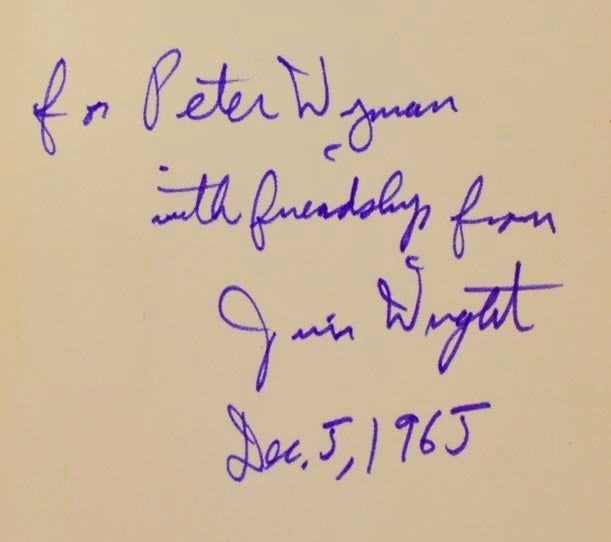 for Peter Wyman
with friendship from
Jim Wright
Dec. 5, 1965